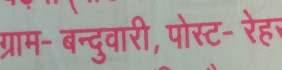 ग्राम- बन्दुवारी, पोस्ट- रेहर